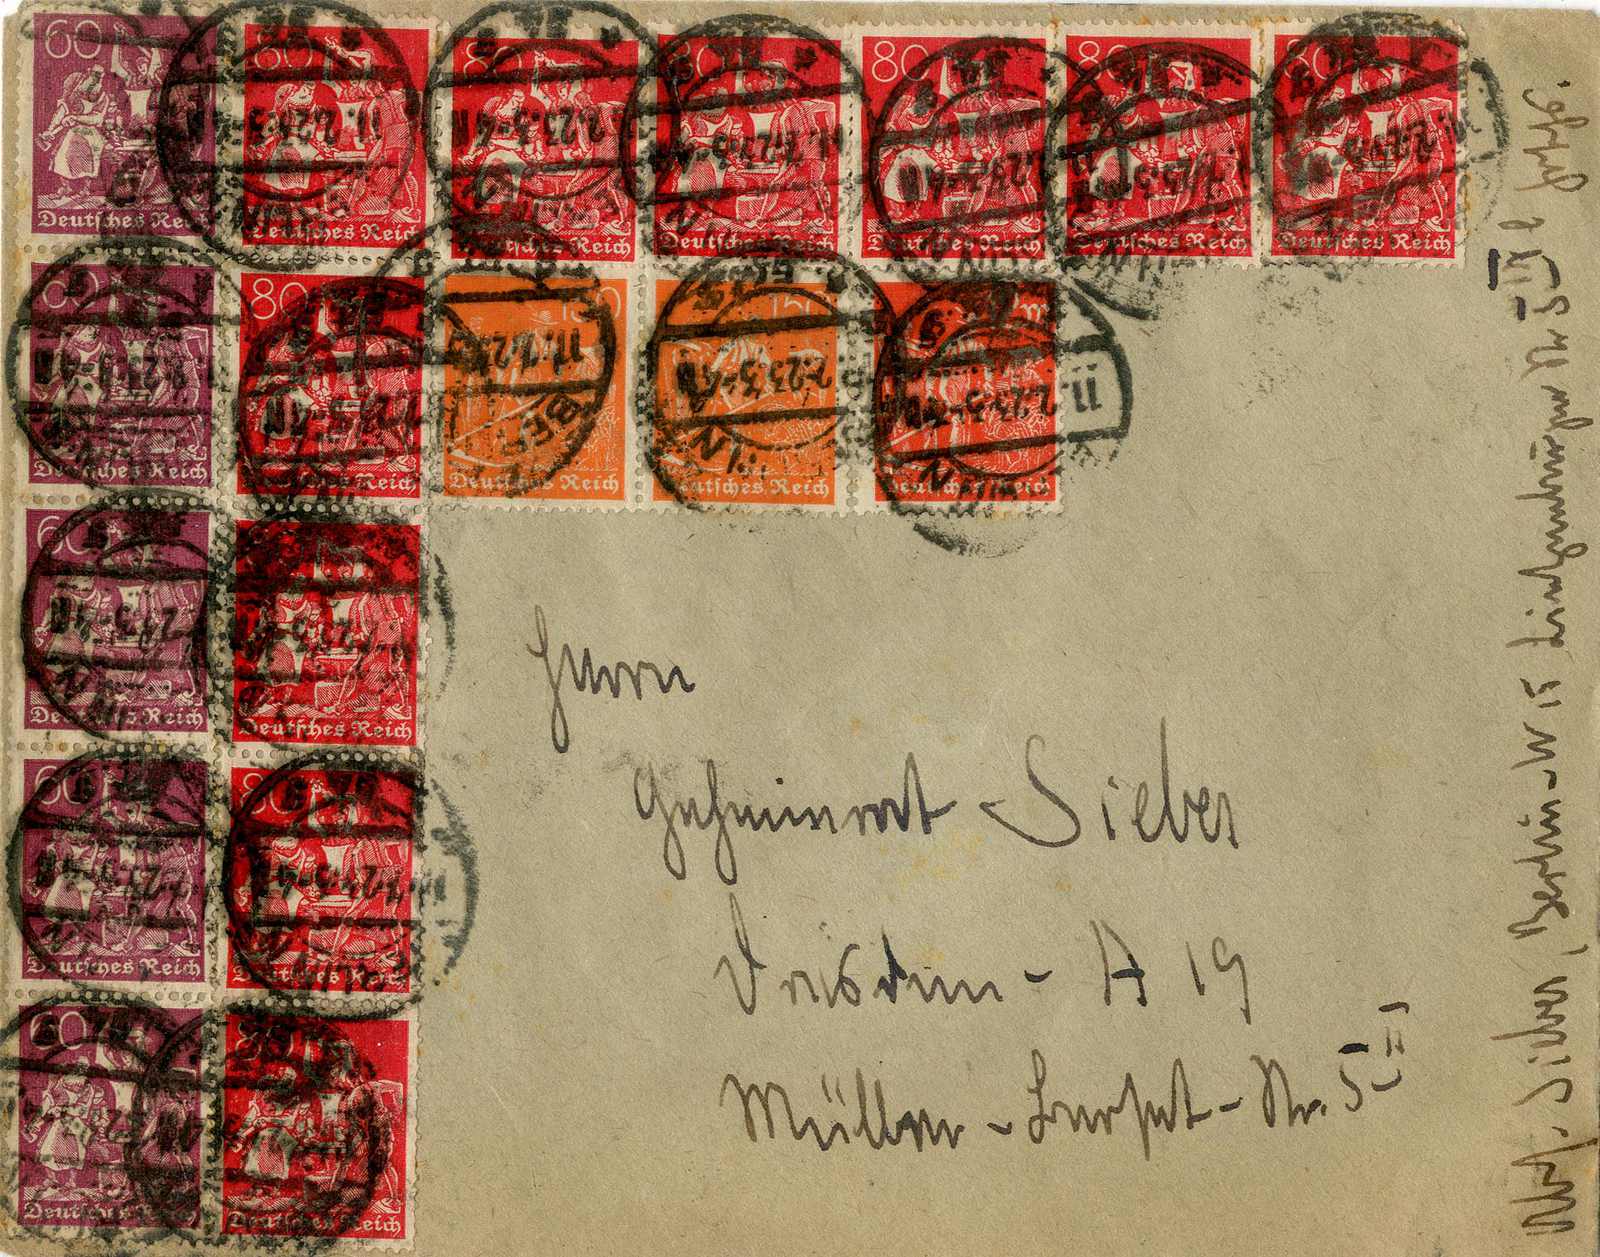 60 80 80 80 80 80 80
Deutsches Reich Deutsches Reich Deutsches Reich Deutsches Reich Deutsches Reich Deutsches Reich Deutsches Reich
60 80 150 150
Deutsches Reich Deutsches Reich Deutsches Reich Deutsches Reich Deutsches Reich
60
Deutsches Reich Deutsches Reich
60 80
Deutsches Reich Deutsches Reich
60 80
Deutsches Reich Deutsches Reich
BERLIN
11.2.23.3-4N
Herrn
Geheimrat Sieber
Dresden - A 19
Müller-Berset-Nr. 5 II
Abs. Sieber, Berlin-W 15 Lietzenburger Nr 5